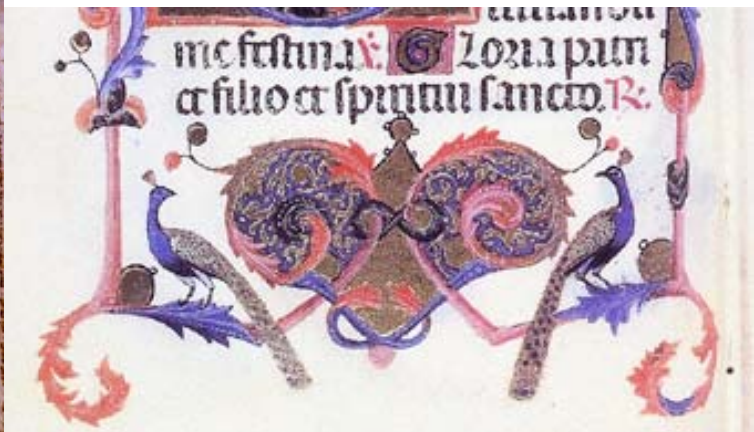 me festina. V. Gloria patri
et filio et spiritui sancto. R.